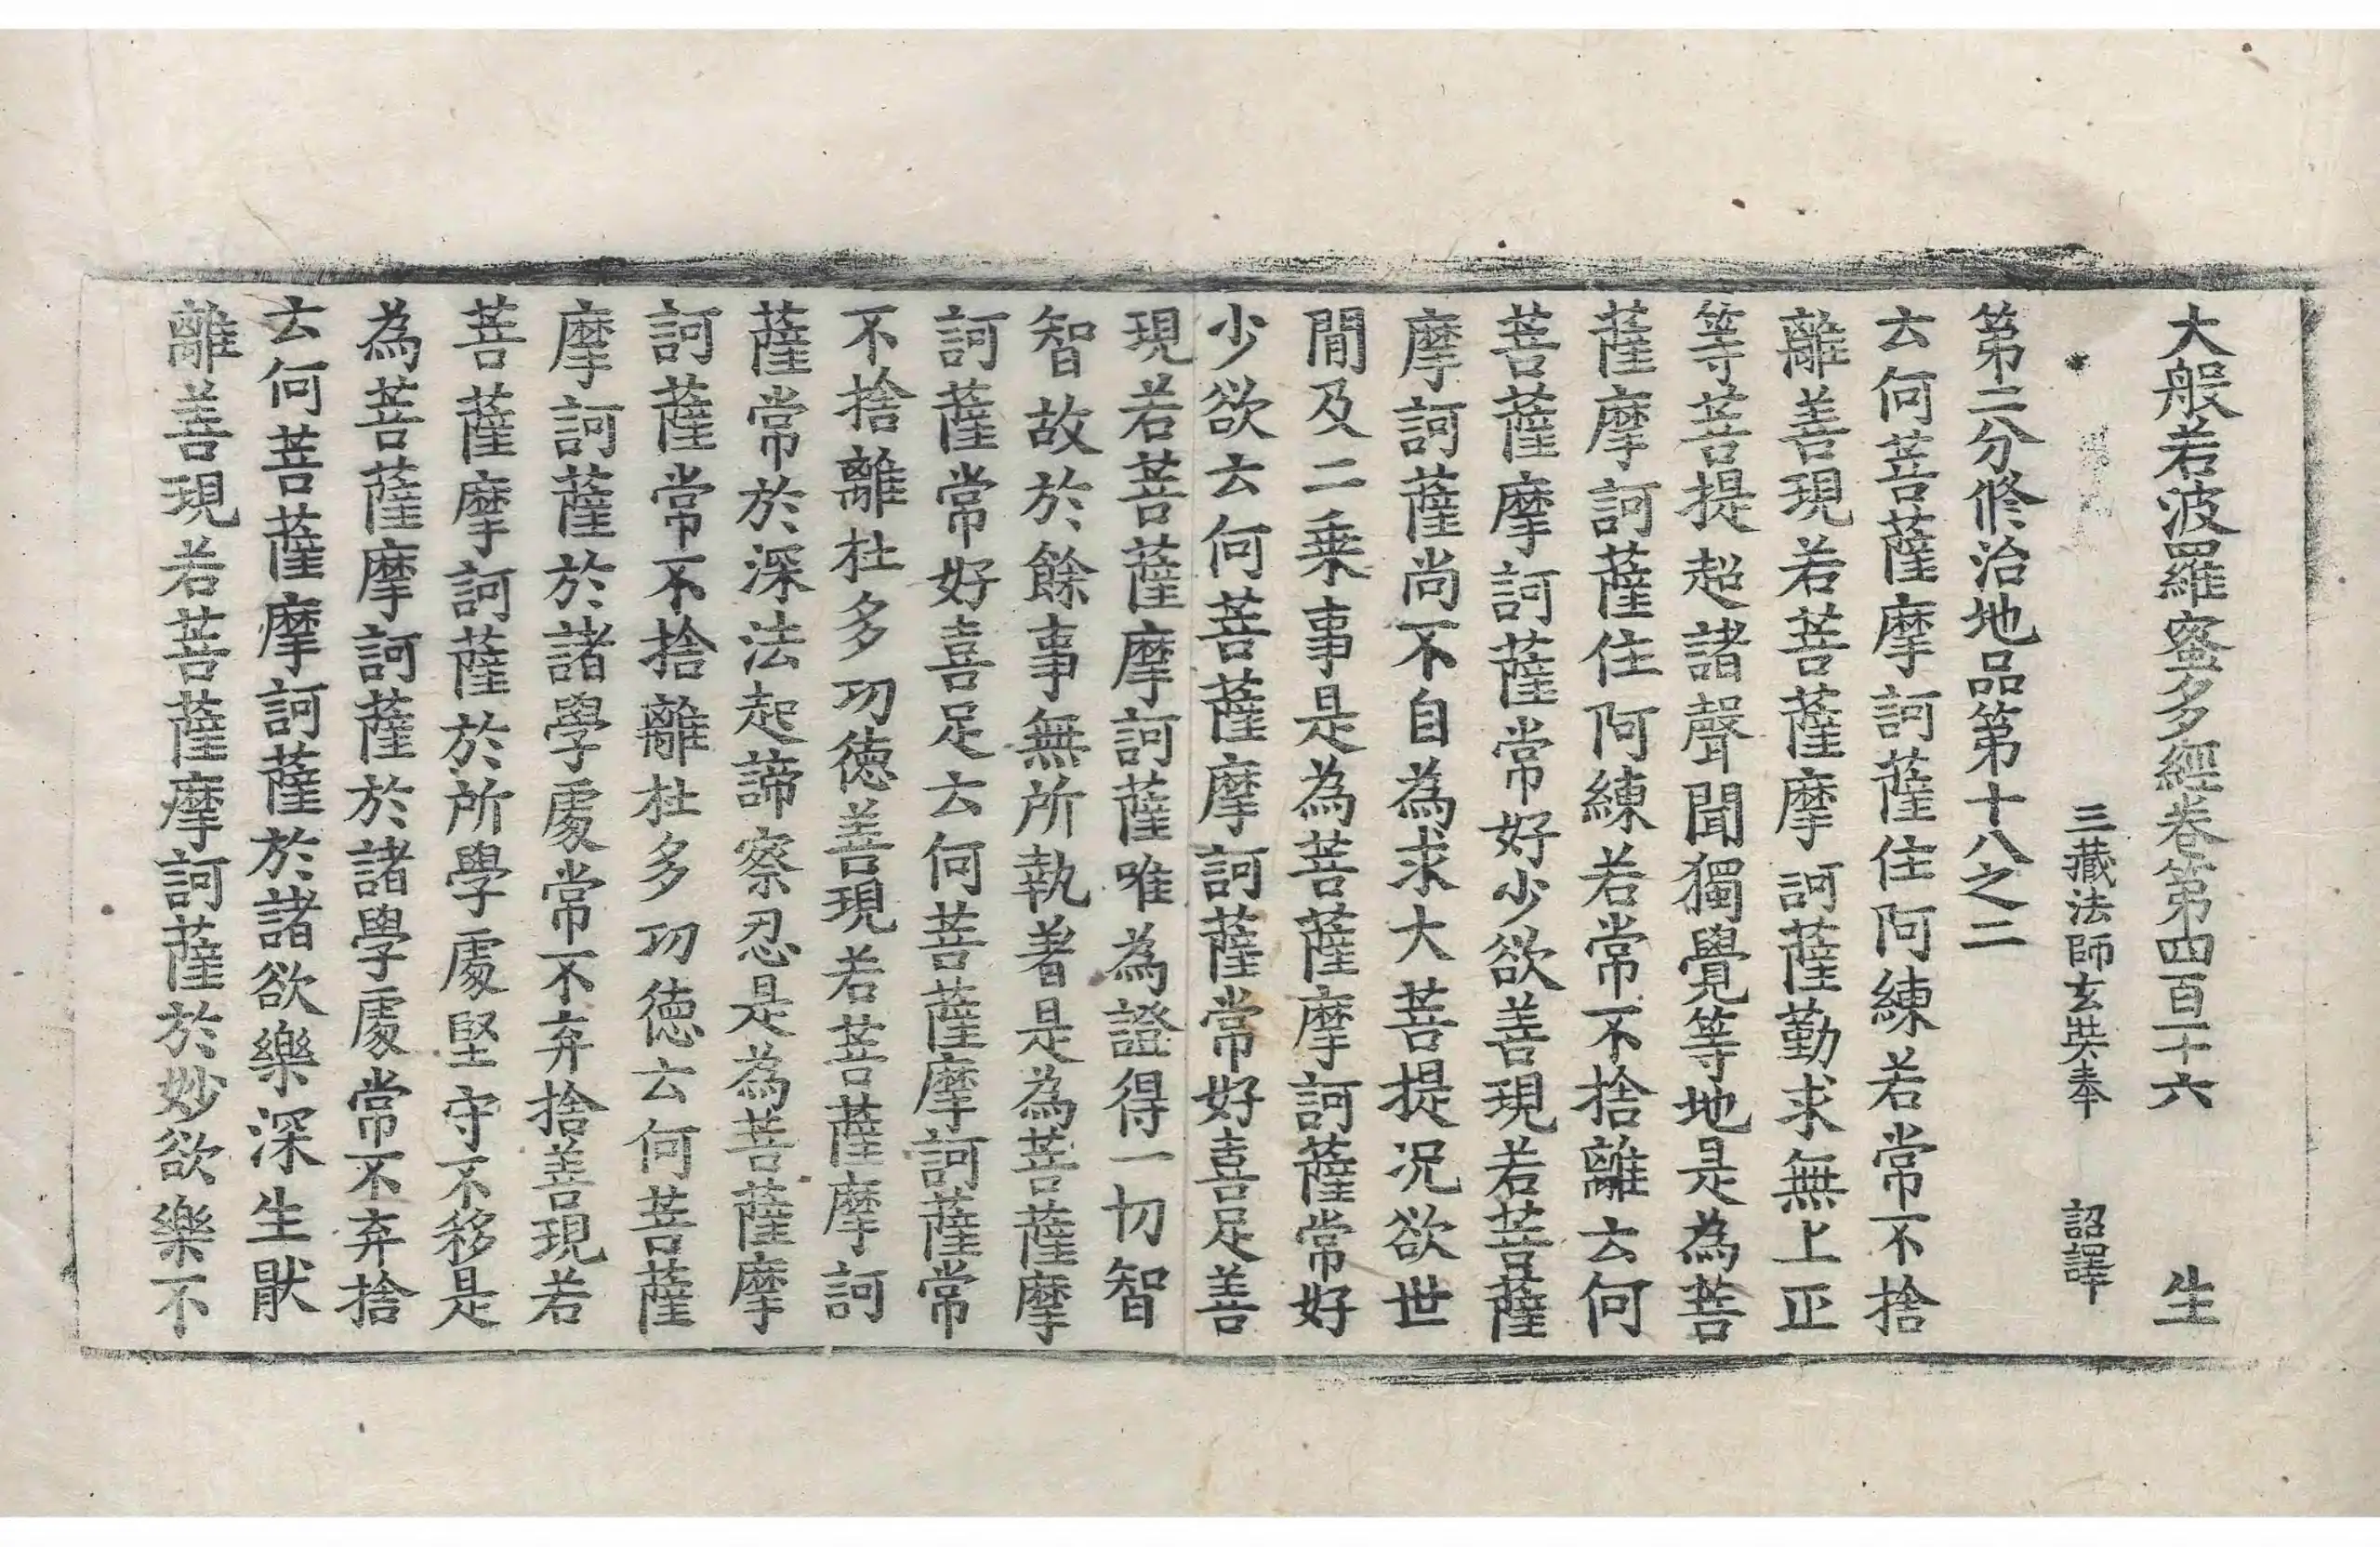 大般若波羅蜜多經卷第四百一十六 生
三藏法師玄奘奉 詔譯
第二分修治地品第十八之二
云何菩薩摩訶薩住阿練若常不捨
離善現若菩薩摩訶薩勤求無上正
等菩提超諸聲聞獨覺等地是為菩
薩摩訶薩住阿練若常不捨離云何
菩薩摩訶薩常好少欲善現若菩薩
摩訶薩尚不自為求大菩提況欲世
間及二乘事是為菩薩摩訶薩常好
少欲云何菩薩摩訶薩常好喜足善
現若菩薩摩訶薩唯為證得一切智
智故於餘事無所執著是為菩薩摩
訶薩常好喜足云何菩薩摩訶薩常
不捨離杜多功德善現若菩薩摩訶
薩常於深法起諦察忍是為菩薩摩
訶薩常不捨離杜多功德云何菩薩
摩訶薩於諸學處常不弃捨善現若
菩薩摩訶薩於所學處堅守不移是
為菩薩摩訶薩於諸學處常不弃捨
云何菩薩摩訶薩於諸欲樂深生猒
離善現若菩薩摩訶薩於妙欲樂不